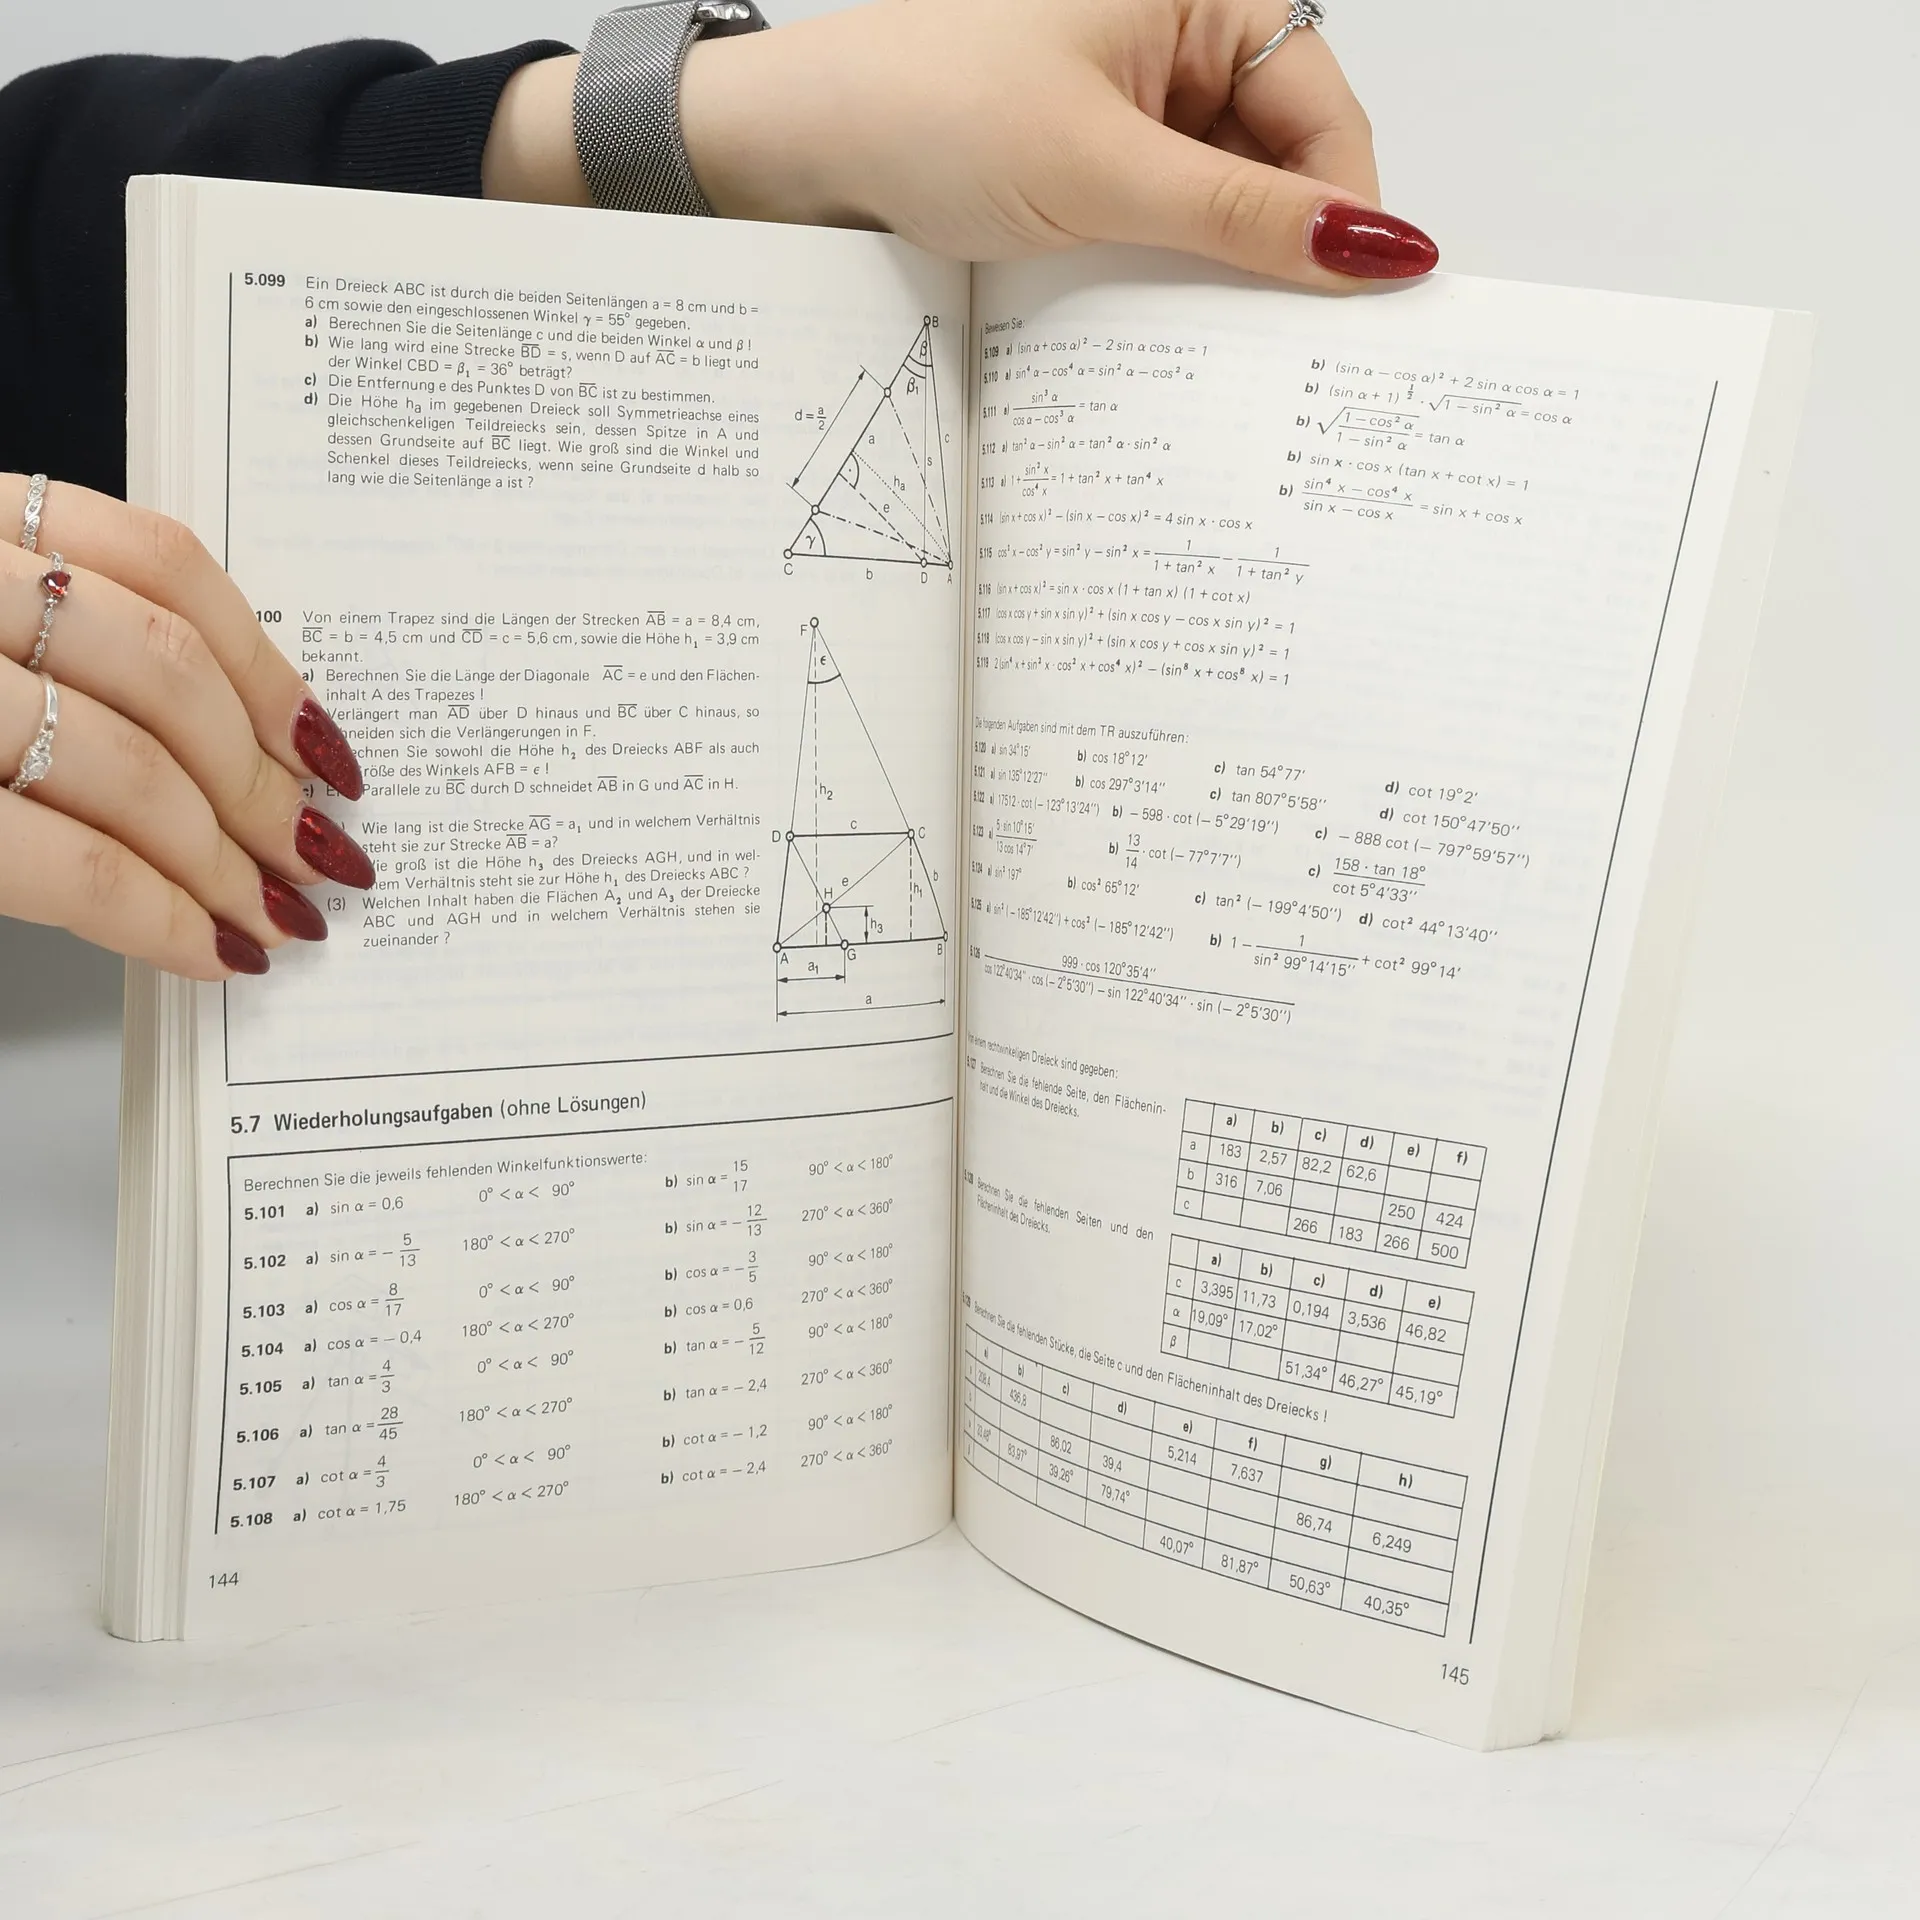 5.099 Ein Dreieck ABC ist durch die beiden Seitenlängen a = 8 cm und b =
6 cm sowie den eingeschlossenen Winkel γ = 55° gegeben.
a) Berechnen Sie die Seitenlänge c und die beiden Winkel α und β !
b) Wie lang wird eine Strecke BD = s, wenn D auf AC = b liegt und
der Winkel CBD = β₁ = 36° beträgt?
c) Die Entfernung e des Punktes D von BC ist zu bestimmen.
d) Die Höhe hₐ im gegebenen Dreieck soll Symmetrieachse eines
gleichschenkeligen Teildreiecks sein, dessen Spitze in A und
dessen Grundseite auf BC liegt. Wie groß sind die Winkel und
Schenkel dieses Teildreiecks, wenn seine Grundseite d halb so
lang wie die Seitenlänge a ist ?
B
β
β₁
d = a/2
a
c
s
hₐ
e
γ
C b D A
100 Von einem Trapez sind die Längen der Strecken AB = a = 8,4 cm,
BC = b = 4,5 cm und CD = c = 5,6 cm, sowie die Höhe h₁ = 3,9 cm
bekannt.
a) Berechnen Sie die Länge der Diagonale AC = e und den Flächen-
inhalt A des Trapezes !
Verlängert man AD über D hinaus und BC über C hinaus, so
schneiden sich die Verlängerungen in F.
chnen Sie sowohl die Höhe h₂ des Dreiecks ABF als auch
röße des Winkels AFB = ϵ !
Parallele zu BC durch D schneidet AB in G und AC in H.
Wie lang ist die Strecke AG = a₁ und in welchem Verhältnis
steht sie zur Strecke AB = a?
ie groß ist die Höhe h₃ des Dreiecks AGH, und in wel-
hem Verhältnis steht sie zur Höhe h₁ des Dreiecks ABC ?
(3) Welchen Inhalt haben die Flächen A₂ und A₃ der Dreiecke
ABC und AGH und in welchem Verhältnis stehen sie
zueinander ?
F
ϵ
h₂
D c C
e b
H h₁
h₃
A G B
a₁
a
5.7 Wiederholungsaufgaben (ohne Lösungen)
Berechnen Sie die jeweils fehlenden Winkelfunktionswerte:
5.101 a) sin α = 0,6 0° < α < 90° b) sin α = 15/17 90° < α < 180°
5.102 a) sin α = − 5/13 180° < α < 270° b) sin α = − 12/13 270° < α < 360°
5.103 a) cos α = 8/17 0° < α < 90° b) cos α = − 3/5 90° < α < 180°
5.104 a) cos α = − 0,4 180° < α < 270° b) cos α = 0,6 270° < α < 360°
5.105 a) tan α = 4/3 0° < α < 90° b) tan α = − 5/12 90° < α < 180°
5.106 a) tan α = 28/45 180° < α < 270° b) tan α = − 2,4 270° < α < 360°
5.107 a) cot α = 4/3 0° < α < 90° b) cot α = − 1,2 90° < α < 180°
5.108 a) cot α = 1,75 180° < α < 270° b) cot α = − 2,4 270° < α < 360°
144
Beweisen Sie:
5.109 a) (sin α + cos α)² − 2 sin α cos α = 1 b) (sin α − cos α)² + 2 sin α cos α = 1
5.110 a) sin⁴ α − cos⁴ α = sin² α − cos² α b) (sin α + 1)^½ · √1 − sin² α = cos α
5.111 a) sin³ α / cos α − cos³ α = tan α b) √(1 − cos² α / 1 − sin² α) = tan α
5.112 a) tan² α − sin² α = tan² α · sin² α b) sin x · cos x (tan x + cot x) = 1
5.113 a) 1 + sin² x / cos⁴ x = 1 + tan² x + tan⁴ x b) sin⁴ x − cos⁴ x / sin x − cos x = sin x + cos x
5.114 (sin x + cos x)² − (sin x − cos x)² = 4 sin x · cos x
5.115 cos² x − cos² y = sin² y − sin² x = 1 / 1 + tan² x − 1 / 1 + tan² y
5.116 (sin x + cos x)² = sin x · cos x (1 + tan x) (1 + cot x)
5.117 (cos x cos y + sin x sin y)² + (sin x cos y − cos x sin y)² = 1
5.118 (cos x cos y − sin x sin y)² + (sin x cos y + cos x sin y)² = 1
5.119 2 (sin⁴ x + sin² x · cos² x + cos⁴ x)² − (sin⁸ x + cos⁸ x) = 1
Die folgenden Aufgaben sind mit dem TR auszuführen:
5.120 a) sin 34°15′ b) cos 18°12′ c) tan 54°77′ d) cot 19°2′
5.121 a) sin 135°12′27″ b) cos 297°3′14″ c) tan 807°5′58″ d) cot 150°47′50″
5.122 a) 17512 · cot (− 123°13′24″) b) − 598 · cot (− 5°29′19″) c) − 888 cot (− 797°59′57″)
5.123 a) 5 · sin 10°15′ / 13 cos 14°7′ b) 13/14 · cot (− 77°7′7″) c) 158 · tan 18° / cot 5°4′33″
5.124 a) sin² 197° b) cos² 65°12′ c) tan² (− 199°4′50″) d) cot² 44°13′40″
5.125 a) sin² (− 185°12′42″) + cos² (− 185°12′42″) b) 1 − 1 / sin² 99°14′15″ + cot² 99°14′
5.126 999 · cos 120°35′4″ / cos 122°40′34″ · cos (− 2°5′30″) − sin 122°40′34″ · sin (− 2°5′30″)
Von einem rechtwinkeligen Dreieck sind gegeben:
5.127 Berechnen Sie die fehlende Seite, den Flächenin-
halt und die Winkel des Dreiecks.
a) b) c) d) e) f)
a 183 2,57 82,2 62,6
b 316 7,06 250 424
c 266 183 266 500
5.128 Berechnen Sie die fehlenden Seiten und den
Flächeninhalt des Dreiecks.
a) b) c) d) e)
c 3,395 11,73 0,194 3,536 46,82
α 19,09° 17,02°
β 51,34° 46,27° 45,19°
5.129 Berechnen Sie die fehlenden Stücke, die Seite c und den Flächeninhalt des Dreiecks !
a) b) c) d) e) f) g) h)
436,8 5,214 7,637
86,02 39,4 86,74 6,249
83,97° 39,26° 79,74°
40,07° 81,87° 50,63° 40,35°
145